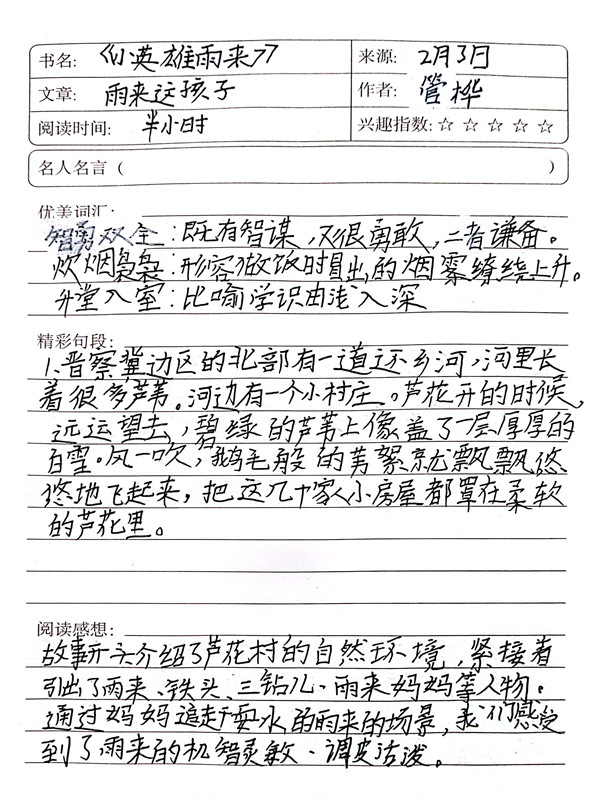 书名:《小英雄雨来》 来源: 2月3日
文章: 雨来这孩子 作者: 管桦
阅读时间: 半小时 兴趣指数:☆ ☆ ☆ ☆ ☆
名人名言 ( )
优美词汇:
智勇双全:既有智谋,又很勇敢,二者谦备。
炊烟袅袅:形容做饭时冒出的烟雾缭绕上升。
升堂入室:比喻学识由浅入深
精彩句段:
1、晋察冀边区的北部有一道还乡河,河里长
着很多芦苇。河边有一个小村庄。芦花开的时候,
远远望去,碧绿的芦苇上像盖了一层厚厚的
白雪。风一吹,鹅毛般的苇絮就飘飘悠
悠地飞起来,把这几十家小房屋都罩在柔软
的芦花里。
阅读感想:
故事开头介绍了芦花村的自然环境,紧接着
引出了雨来、铁头、三钻儿、雨来妈妈等人物。
通过妈妈追赶耍水的雨来的场景,我们感受
到了雨来的机智灵敏、调皮活泼。